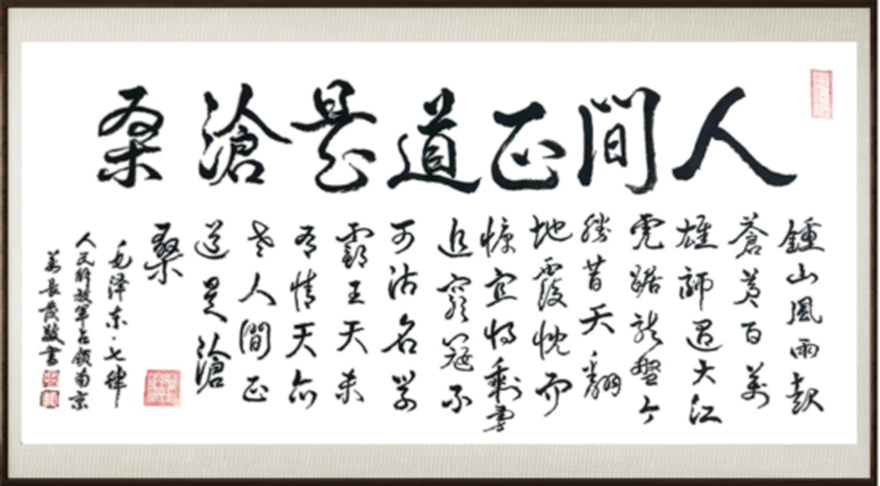 人間正道是滄桑
鍾山風雨起
蒼黃百萬
雄師過大江
虎踞龍盤今
勝昔天翻
地覆慨而
慷宜將剩勇
追窮寇不
可沽名學
霸王天若
有情天亦
老人間正
道是滄
桑
毛泽东·七律
人民解放军占领南京
書